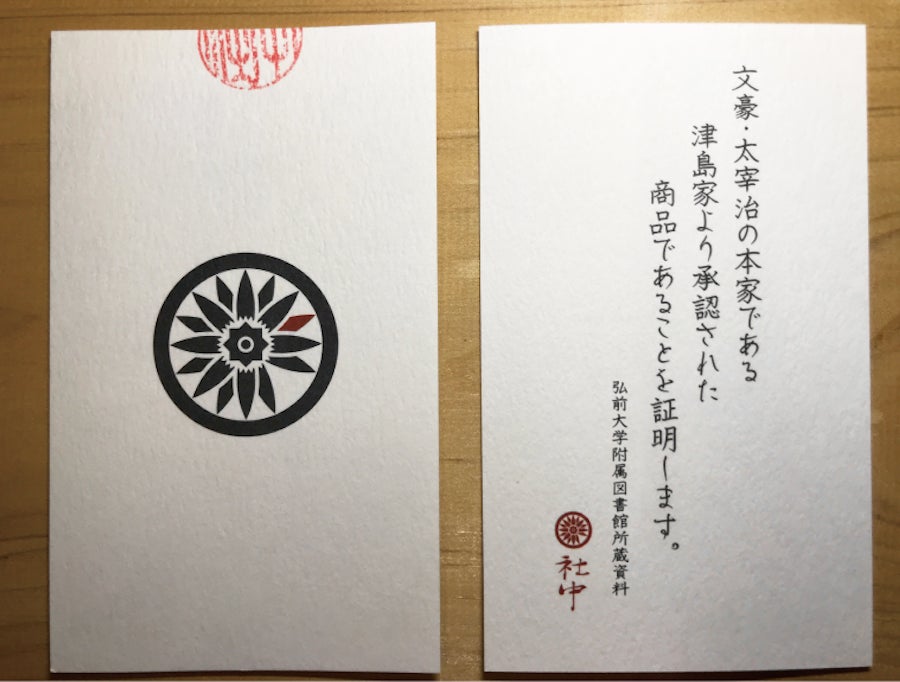 文豪・太宰治の本家である
津島家より承認された
商品であることを証明します。
弘前大学附属図書館所蔵資料
社中